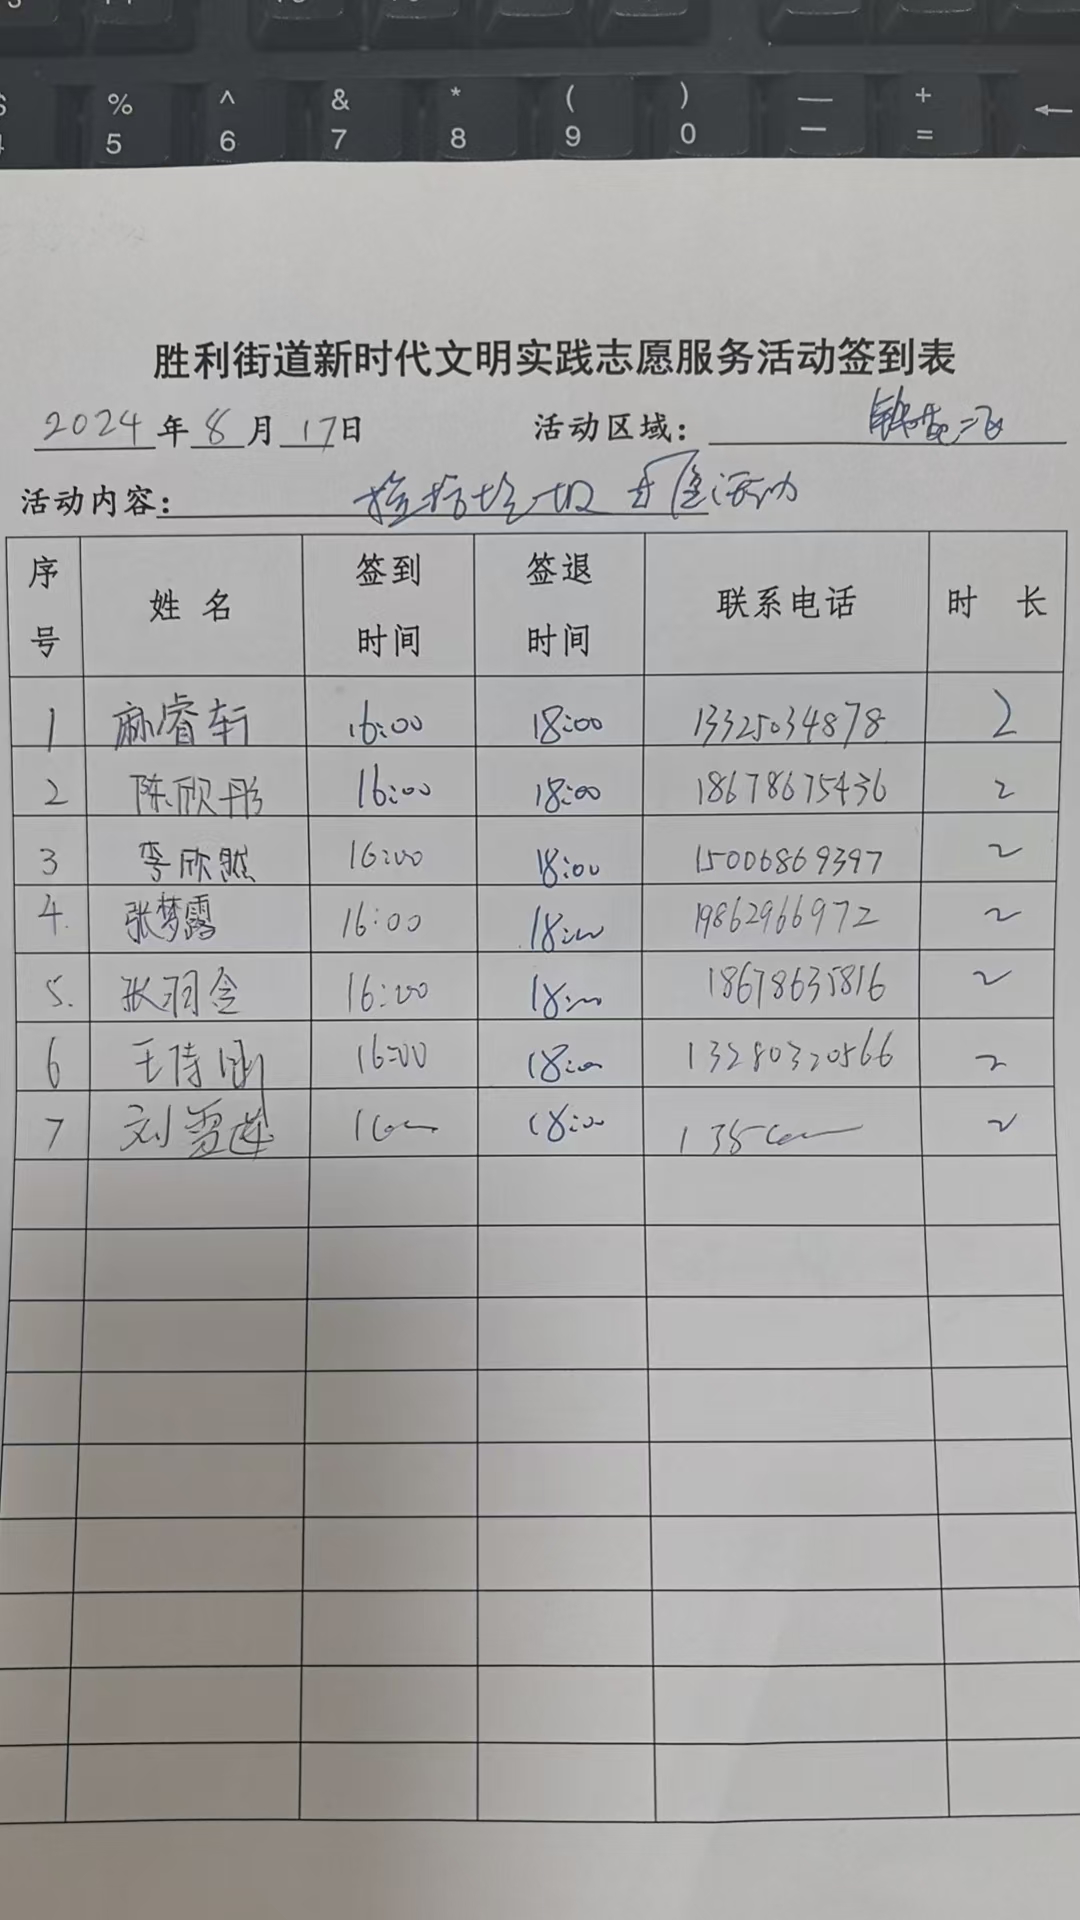 % ^ & * ( ) — +
5 6 7 8 9 0 - = ←
胜利街道新时代文明实践志愿服务活动签到表
2024年8月17日 活动区域:
活动内容: 捡拾垃圾 活动
序号 姓名 签到时间 签退时间 联系电话 时长
1 麻睿轩 16:00 18:00 13325034878 2
2 陈欣彤 16:00 18:00 18678675436 2
3 李欣然 16:00 18:00 15006869397 2
4. 张梦露 16:00 18:00 19862966972 2
5. 张羽含 16:00 18:00 18678635816 2
6 王诗涵 16:00 18:00 13280320566 2
7 刘雪莲 16 18:00 135 2